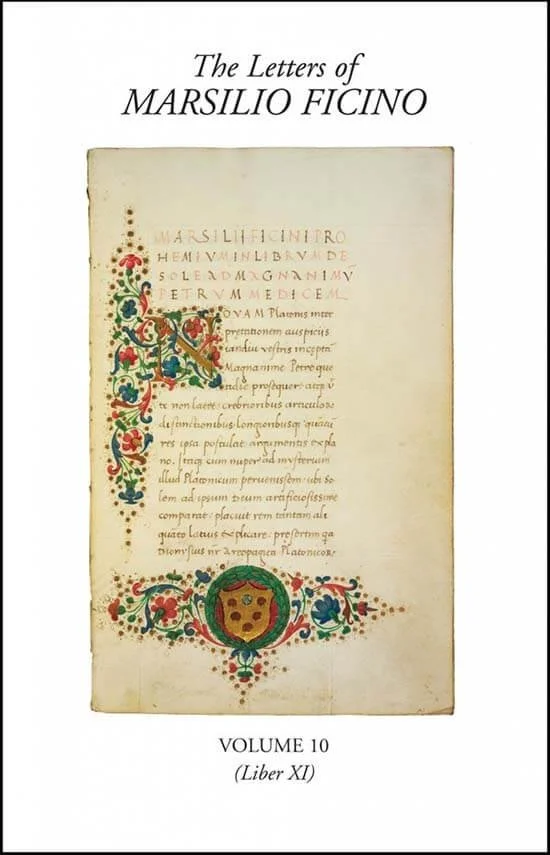 The Letters of
MARSILIO FICINO
MARSILII FICINI PRO
HEMIVM IN LIBRVM DE
SOLE AD MAGNANIMV̄
PETRVM MEDICEM
NOVAM Platonis inter
prętationem auspiciis
iandiu vestris incęptā
Magnanime Petre quo
tidie prosequor: atq; ū
te non latet: crebrioribus articulorȝ
distinctionibus: longioribusq; quatin̄
res ipsa postulat argumentis expla
no. Itaq; cum nuper ad mysterium
illud Platonicum pervenissem: ubi So
lem ad ipsum Deum artificiosissime
comparat: placuit rem tantam ali
quāto latius explicare: presertim qa
Dionysius nr̄ Areopagita Platonicorȝ
VOLUME 10
(Liber XI)